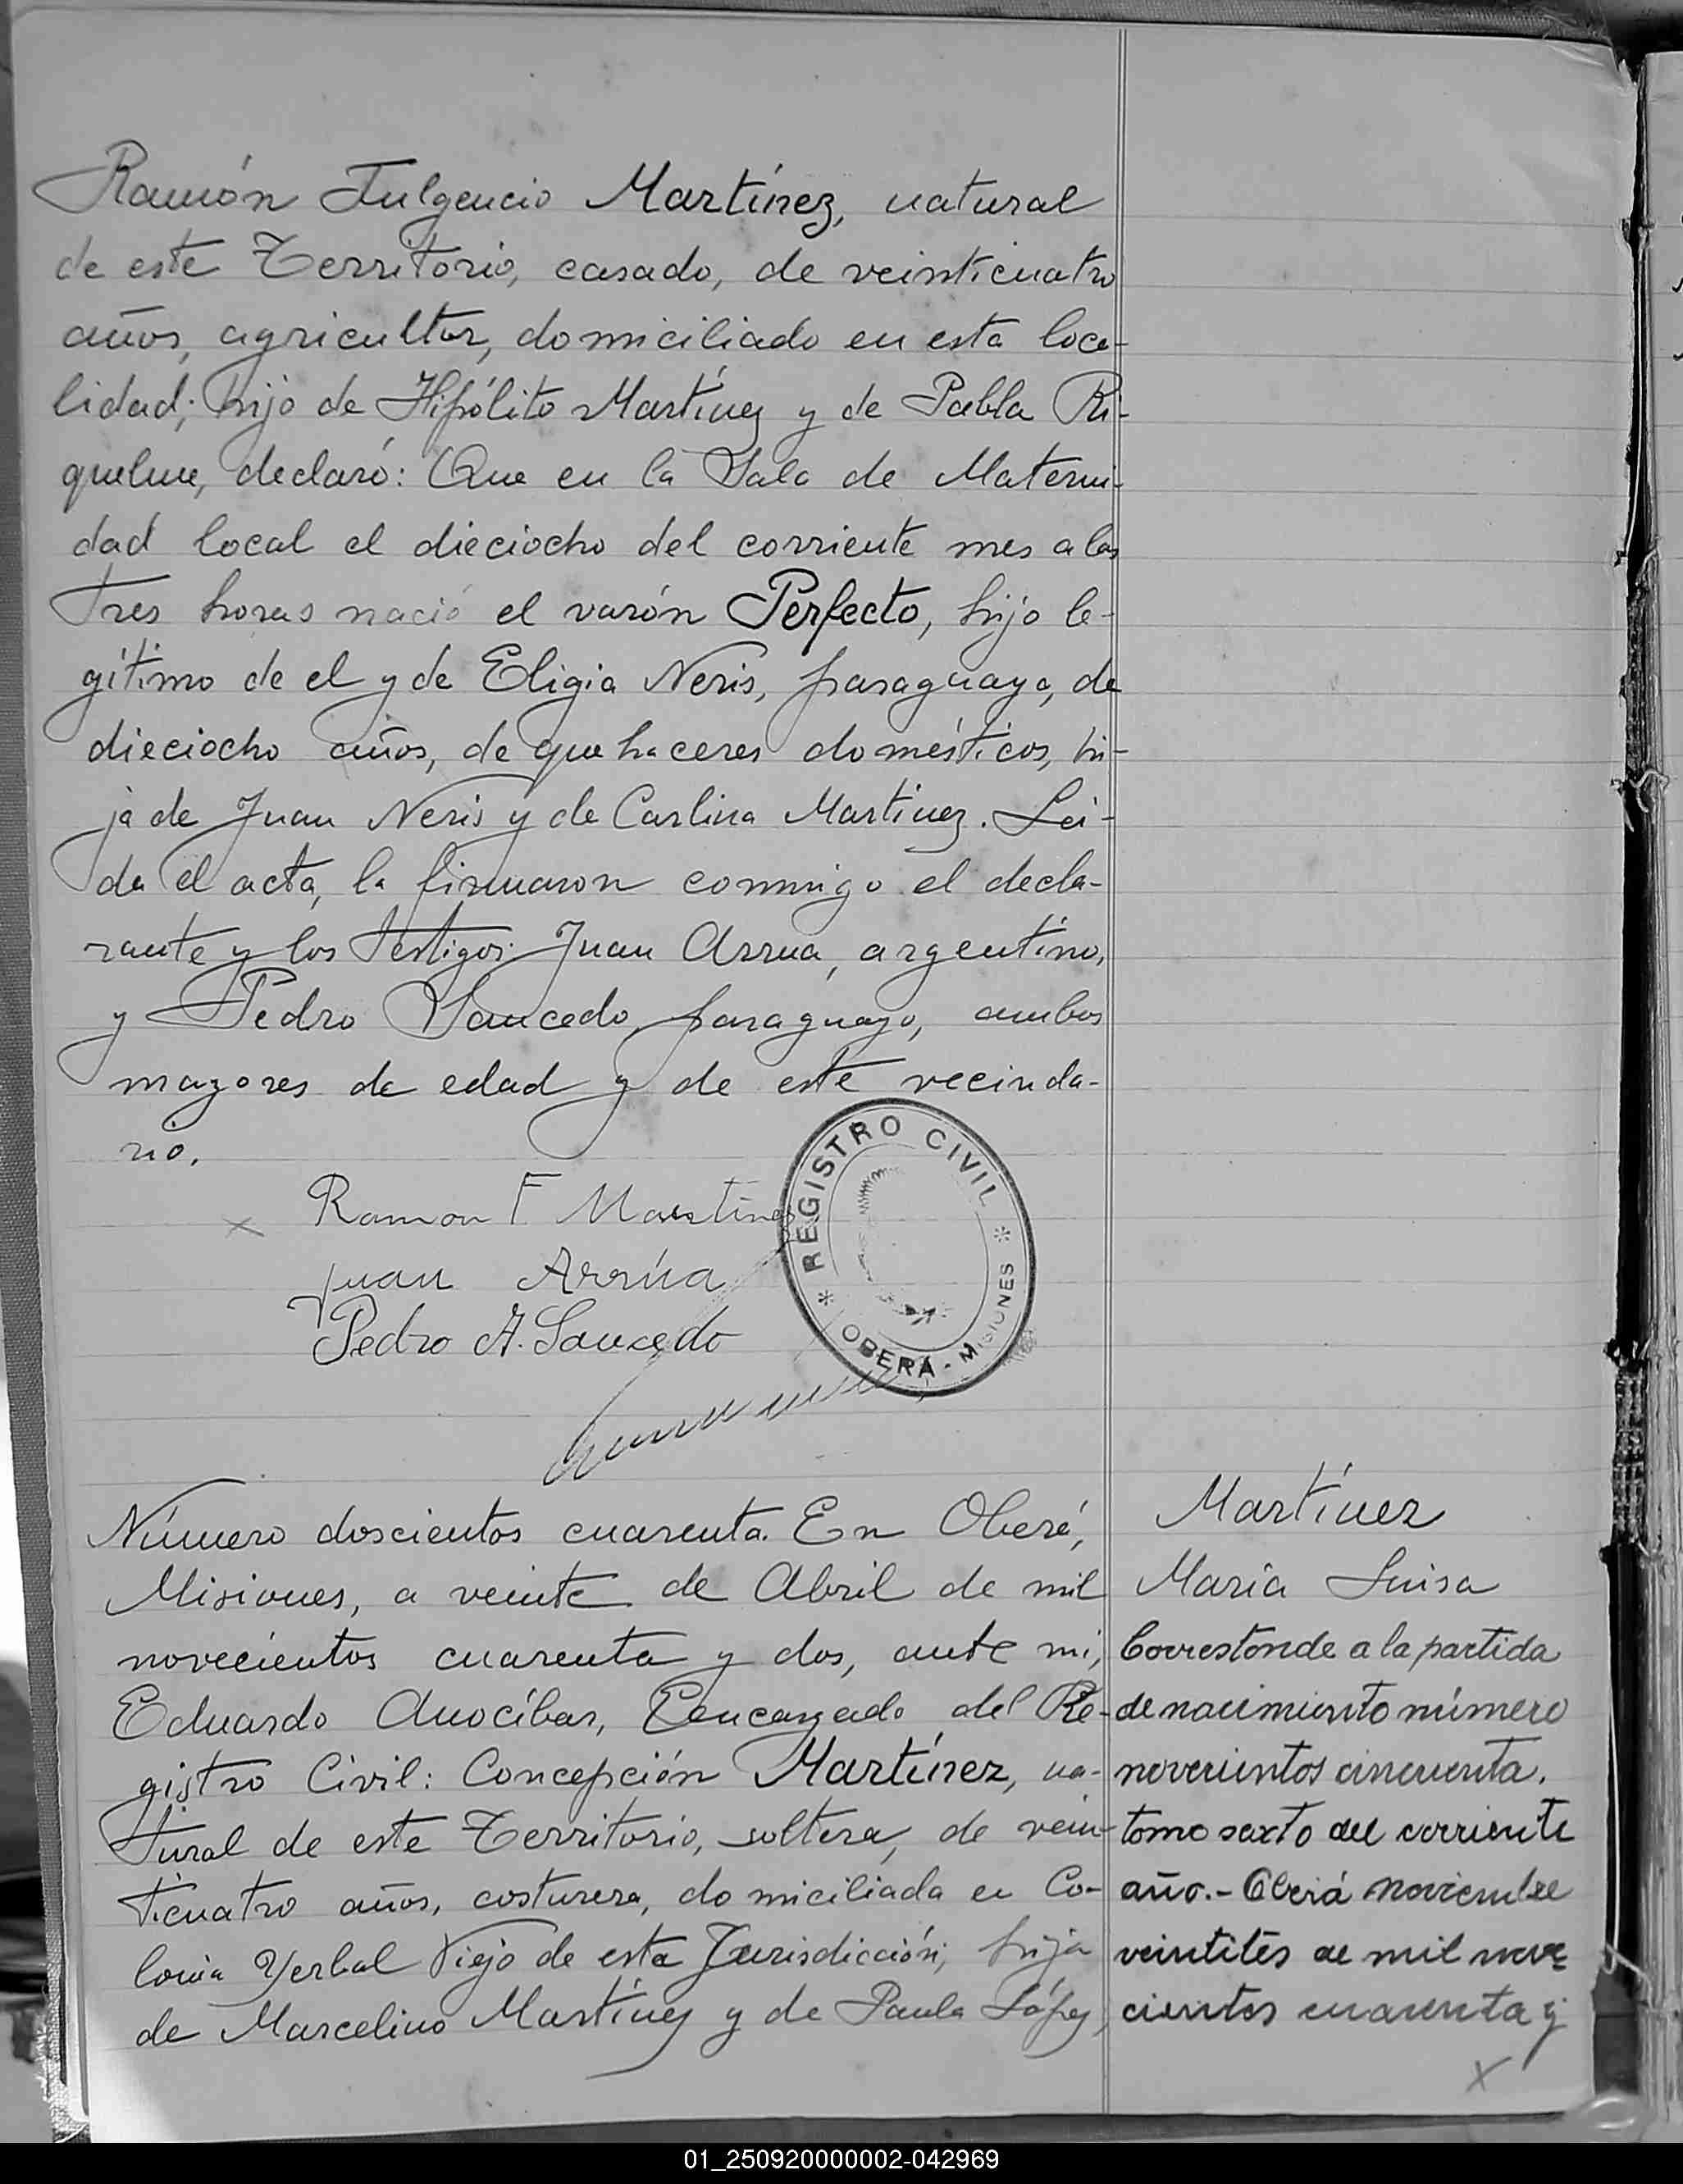 Ramón Fulgencio Martínez, natural
de este Territorio, casado, de veinticuatro
años, agricultor, domiciliado en esta loca-
lidad; hijo de Hipólito Martínez y de Pabla Ri-
quelme, declaró: Que en la Sala de Materni-
dad local el dieciocho del corriente mes a las
tres horas nació el varón Perfecto, hijo le-
gítimo de el y de Eligia Neris, paraguaya, de
dieciocho años, de quehaceres domésticos, hi-
ja de Juan Neris y de Carlina Martínez. Lei-
da el acta, la firmaron conmigo el decla-
rante y los testigos: Juan Arrua, argentino,
y Pedro Saucedo, paraguayo, ambos
mayores de edad y de este vecinda-
rio.
x Ramon F Martinez
Juan Arrúa
Pedro A. Saucedo
REGISTRO CIVIL
* OBERÁ - MISIONES *
Número doscientos cuarenta. En Oberá,
Misiones, a veinte de Abril de mil
novecientos cuarenta y dos, ante mi,
Eduardo Anocíbar, Encargado del Re-
gistro Civil: Concepción Martínez, na-
tural de este Territorio, soltera, de vein-
ticuatro años, costurera, domiciliada en Co-
lonia Yerbal Viejo de esta Jurisdicción, hija
de Marcelino Martínez y de Paula López,
Martínez
María Luisa
Corresponde a la partida
de nacimiento número
novecientos cincuenta.
tomo sexto del corriente
año.- Oberá noviembre
veintités de mil nove
cientos cuarenta y
x
01_250920000002-042969